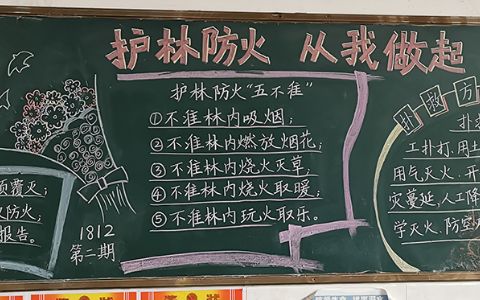 护林防火 从我做起
护林防火“五不准”
①不准林内吸烟;
②不准林内燃放烟花;
③不准林内烧火灭草;
④不准林内烧火取暖;
⑤不准林内玩火取乐。
覆灭;
防火;
报告。
1812
第二期
扑救方
扑
工扑打.用土
用气灭火.开
灾蔓延.人工降
学灭火.防空